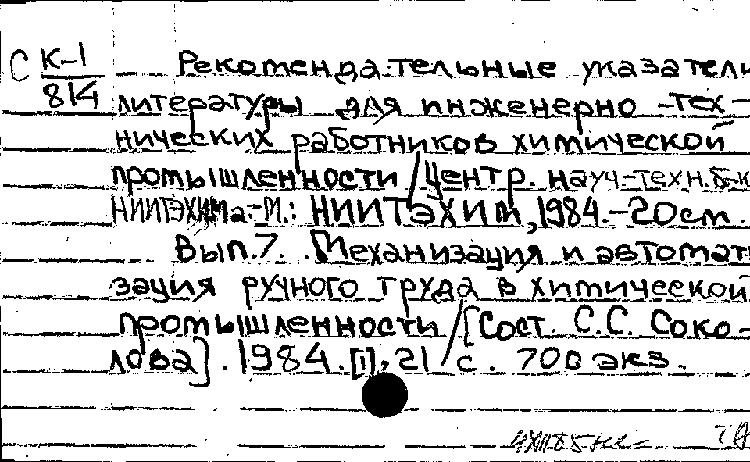 С К-1 Рекомендательные указатели
814 литературы для инженерно-тех-
нических работников химической
промышленности / Центр. науч.-техн. б-к
НИИТЭХИМа.-М.: НИИТЭХИМ, 1984.-20см.
Вып.7. Механизация и автомат
зация ручного труда в химической
промышленности / [Сост. С.С. Соко-
лова]. 1984. [1], 21 с. 700 экз.